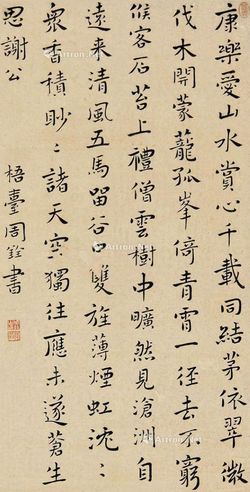 康樂愛山水賞心千載同結茅依翠微
伐木開蒙蘢孤峯倚青霄一徑去不窮
候客石苔上禮僧雲樹中曠然見滄洲自
遠来清風五馬留谷口雙旌薄煙虹沈〻
衆香積眇〻諸天空獨往應未遂蒼生
思謝公
梧臺周銓書